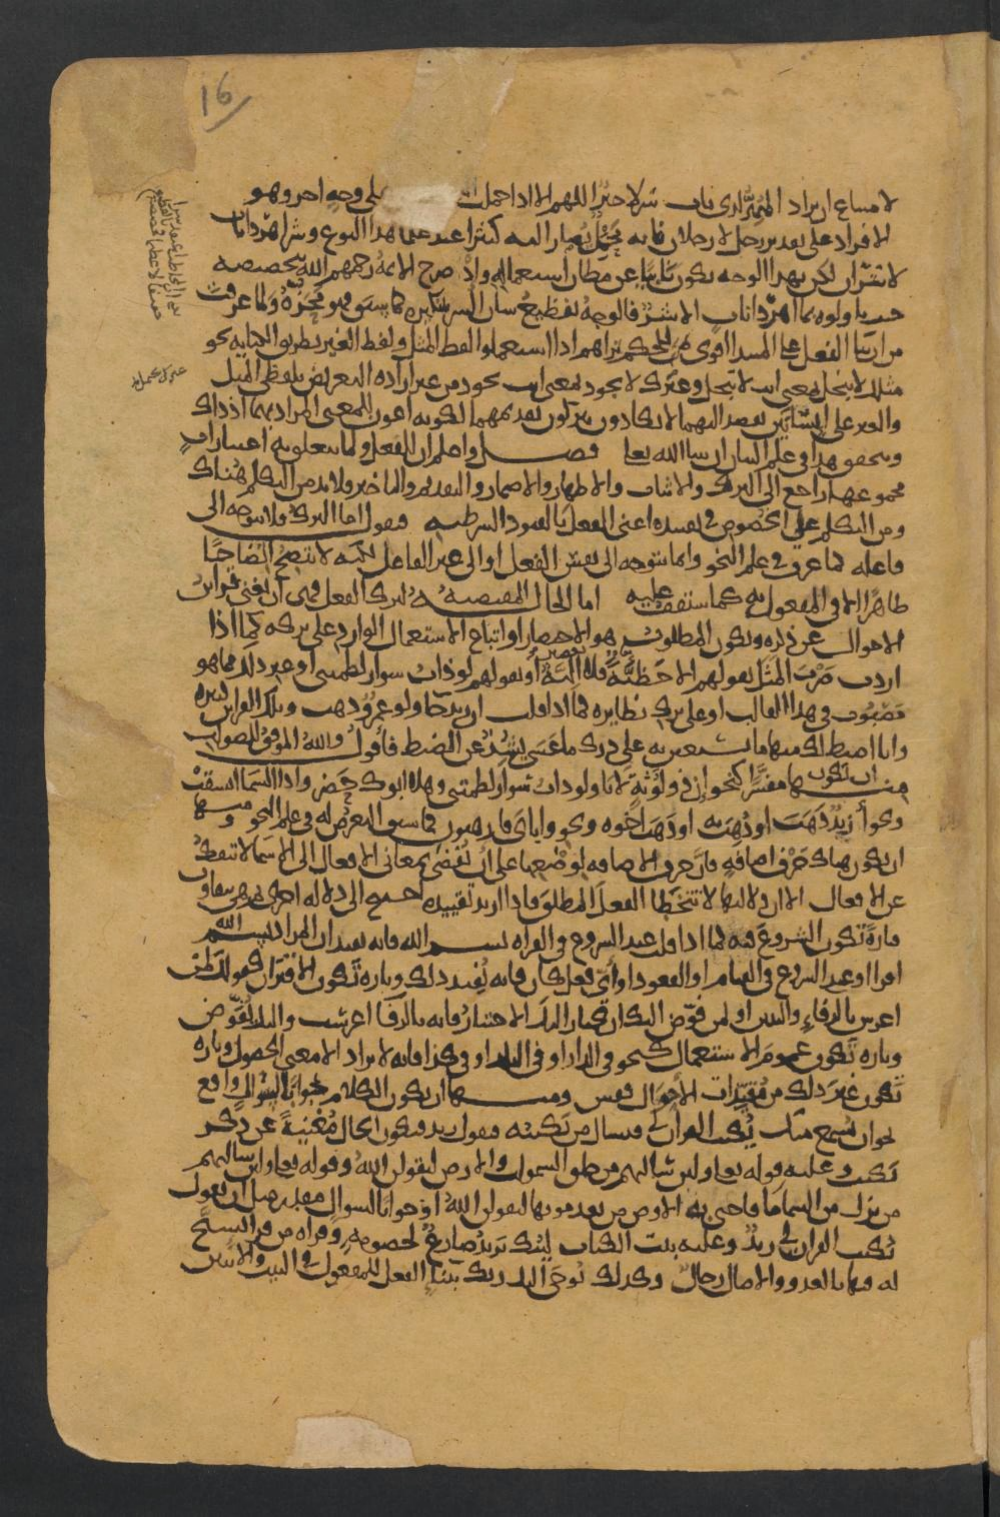 16
لامتناع ان يراد المهر شر لا خير اللهم الا اذا حملت على وجه اخر وهو
الافراد على تقدير رجل لا رجلان فانه محتمل يصار اليه كثيرا عند علماء هذا النوع وشر اهر ذا ناب
لا شران لكن بهذا الوجه يكون نابيا عن مظان استعماله واذ صرح الائمة رحمهم الله بتخصيصه
حيث تاولوه بما اهر ذا ناب الا شر فالوجه تفظيع شان الشر بتنكيره كما سبق فهو محزه ولما عرفت
من ان بناء الفعل على المبتدا اقوى للحكم تراهم اذا استعملوا لفظ المثل ولفظ الغير بطريق الكناية نحو
مثلك لا يبخل بمعنى انت لا تبخل وغيرك لا يجود بمعنى انت تجود من غير ارادة التعريض بلفظي المثل
والغير على انسانين يقصد اليهما لا يكادون يتركون تقديمهما لكونه اعون للمعنى المراد بهما اذ ذاك
وستحقق هذا في علم البيان ان شا الله تعالى فصل واعلم ان للفعل ولما يتعلق به اعتبارات
مجموعها راجع الى الترك والاثبات والاظهار والاضمار والتقديم والتاخير ولا بد من التكلم هناك
ومن التكلم على الخصوص في تقييده اعني الفعل بالقيود الشرطية فنقول اما الترك فلا يتوجه الى
فاعله لما عرف في علم النحو وانما يتوجه الى نفس الفعل او الى غير الفاعل لكنه لا يتضح اتضاحا
ظاهرا الا في المفعول به كما ستقف عليه اما الحال المقتضية لترك الفعل فهي ان تغني قرائن
الاحوال عن ذكره ويكون المطلوب هو الاختصار او اتباع الاستعمال الوارد على تركه كما اذا
اردت ضرب المثل بقولهم الا حظية فلا الية او بقولهم لو ذات سوار لطمتني او غير ذلك مما هو
مصبوب في هذا القالب او على ترك نظايره كما اذا قلت ان زيد جا ولو عمرو ذهب وتلك القراين كثيرة
وانا اضبط لك منها ما تستعين به على درك ما عسى يشذ عن الضبط فاقول والله الموفق للصواب
منها ان يكون مفسرا كنحو ان ذو لوثة لانا ولو ذات سوار لطمتني وهلا ابوك حضر واذا السما انشقت
ونحو أزيد ذهب او ذهب به او ذهب اخوه ونحو واياي فارهبون كما سبق التعرض له في علم النحو ومنها
ان يكون هناك حرف اضافة فان حروف الاضافة لوضعها على ان تفضي بمعاني الافعال الى الاسما لا تنفك
عن الافعال الا ان دلالتها لا تتخطا الفعل المطلق فاذا اريد تقييده احتيج الى دلالة اخرى ثم هي تتفاوت
فتارة تكون الشروع فيه كما اذا قلت عند الشروع في القراه بسم الله فانه يفيد ان المراد بسم الله
اقرا او عند الشروع في القيام او القعود او اي فعل كان فانه يفيد ذلك وتارة تكون الاقتران كقولك لمن
اعرس بالرفاء والبنين او لمن فوض اليك ان تختار اليك الاختيار فانه بالرفا اعرست واليك يفوض
وتارة تكون عموم الاستعمال كنحو في الدار او في البلد او في كذا فانه لا يراد الا معنى الحصول وتارة
تكون غير ذلك من مقيدات الاحوال فقس ومنها ان يكون الكلام جوابا لسؤال واقع
كنحو ان تسمع منك يكتب القران لي فتسال من يكتبه فنقول زيد فتكون الحال مغنية عن ذكر
يكتب وعليه قوله تعالى ولئن سالتهم من خلق السموات والارض ليقولن الله وقوله تعالى ولئن سالتهم
من نزل من السما ما فاحيى به الارض من بعد موتها ليقولن الله او جوابا لسوال مقدر مثل ان تقول
يكتب القران لي زيد وعليه بيت الكتاب ليبك يزيد ضارع لخصومة وقراه من قرا يسبح
له فيها بالغدو والاصال رجال وكذلك يوحى اليك ربك ببناء الفعل للمفعول في البيت والايتين